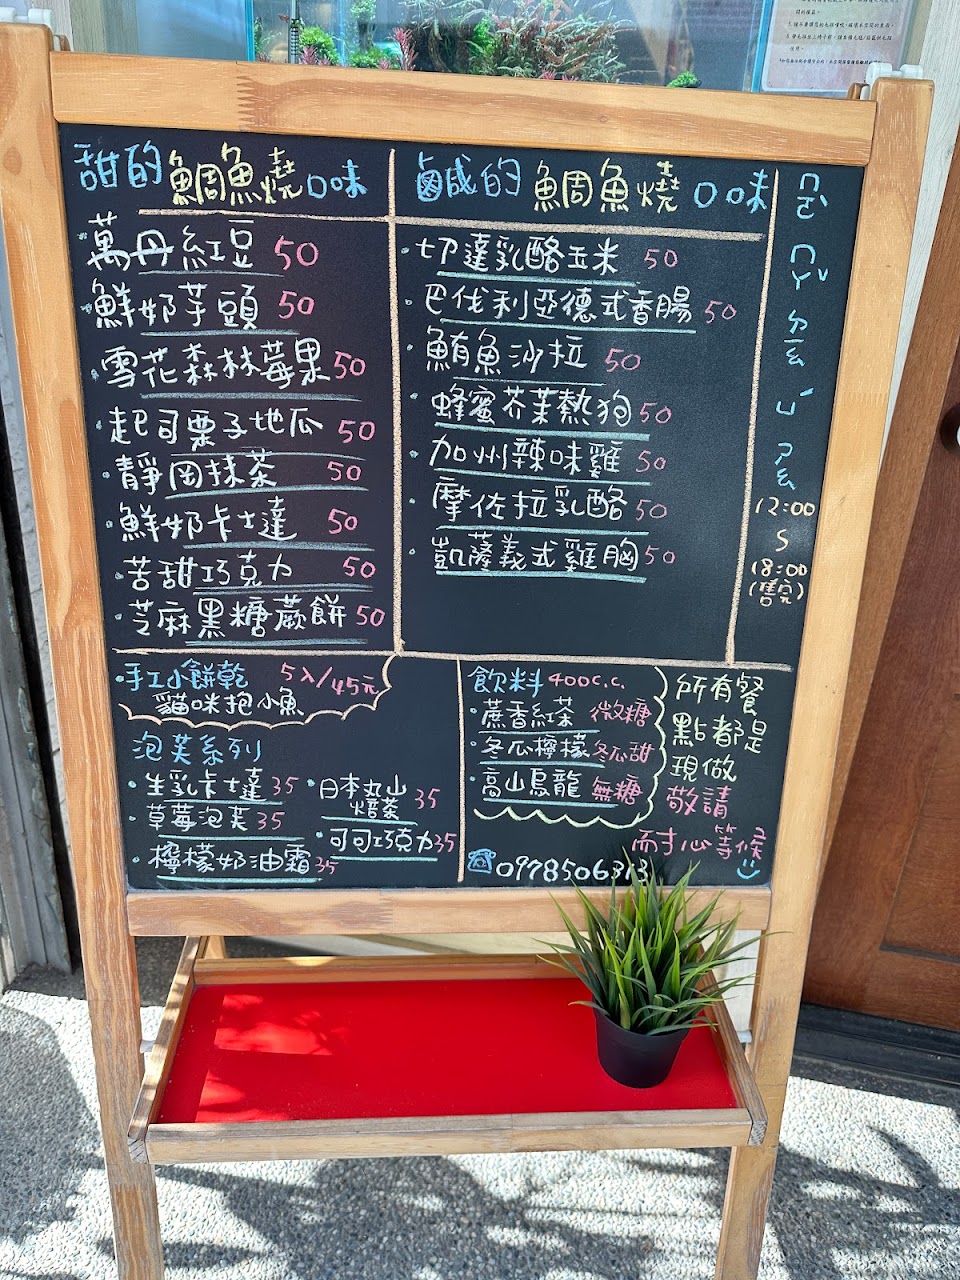 甜的鯛魚燒口味
萬丹紅豆 50
鮮奶芋頭 50
雪花森林莓果 50
起司栗子地瓜 50
靜岡抹茶 50
鮮奶卡士達 50
苦甜巧克力 50
芝麻黑糖蕨餅 50
鹹的鯛魚燒口味
切達乳酪玉米 50
巴伐利亞德式香腸 50
鮪魚沙拉 50
蜂蜜芥茉熱狗 50
加州辣味雞 50
摩佐拉乳酪 50
凱薩義式雞胸 50
12:00
18:00
(售完)
手工小餅乾 5入/45元
貓咪抱小魚
泡芙系列
生乳卡士達 35
草莓泡芙 35
檸檬奶油霜 35
日本丸山
焙茶 35
可可巧克力 35
飲料 400c.c.
蔗香紅茶 微糖
冬瓜檸檬 冬瓜甜
高山烏龍 無糖
所有餐
點都是
現做
敬請
耐心等候
0978506313